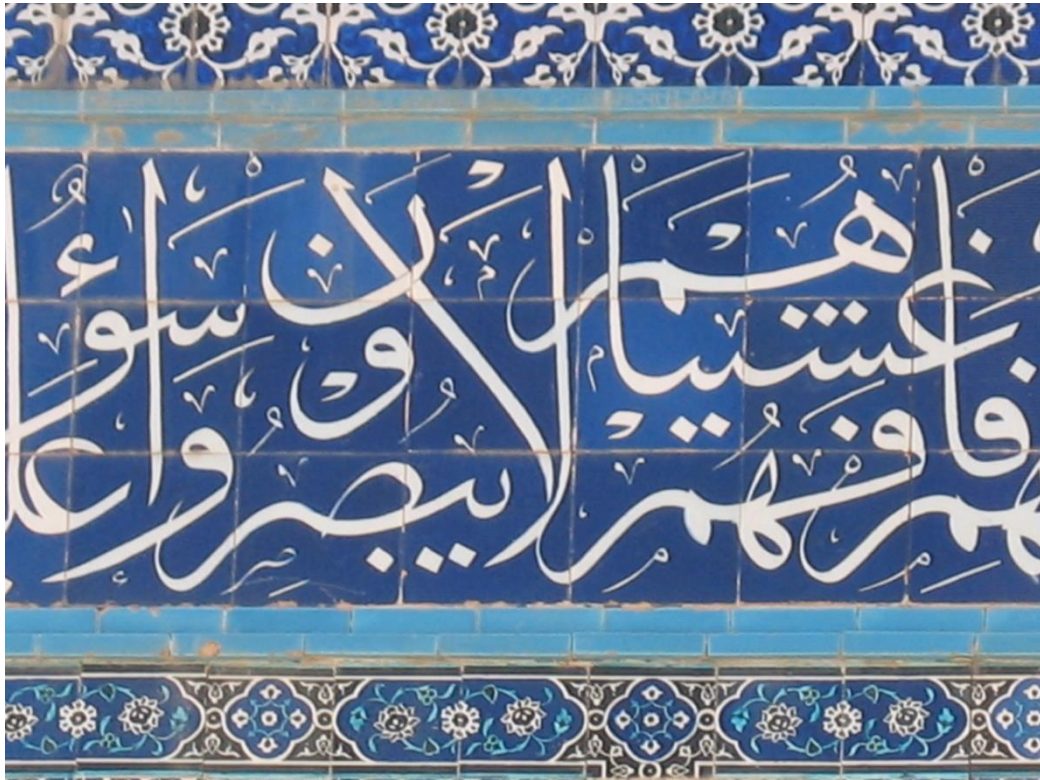 فَأَغْشَيْنَاهُمْ فَهُمْ لَا يُبْصِرُونَ وَسَوَاءٌ